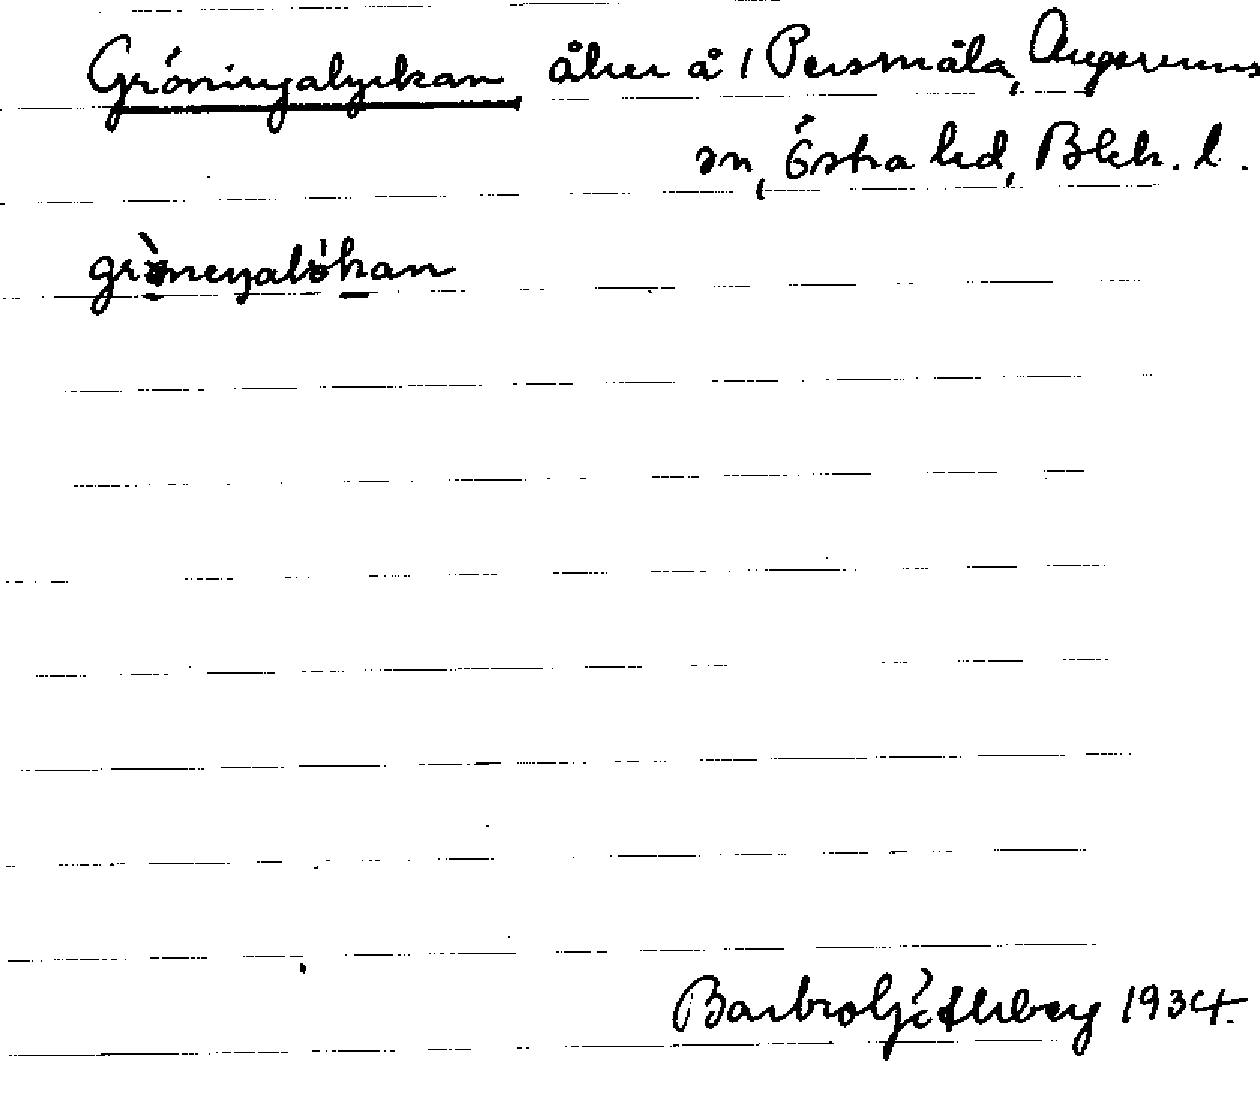 Gröningalyckan åker å 1 Persmåla, Augerums
sn, Östra hd, Blek. l.
gröneŋalókan
Barbro Götherberg 1934.